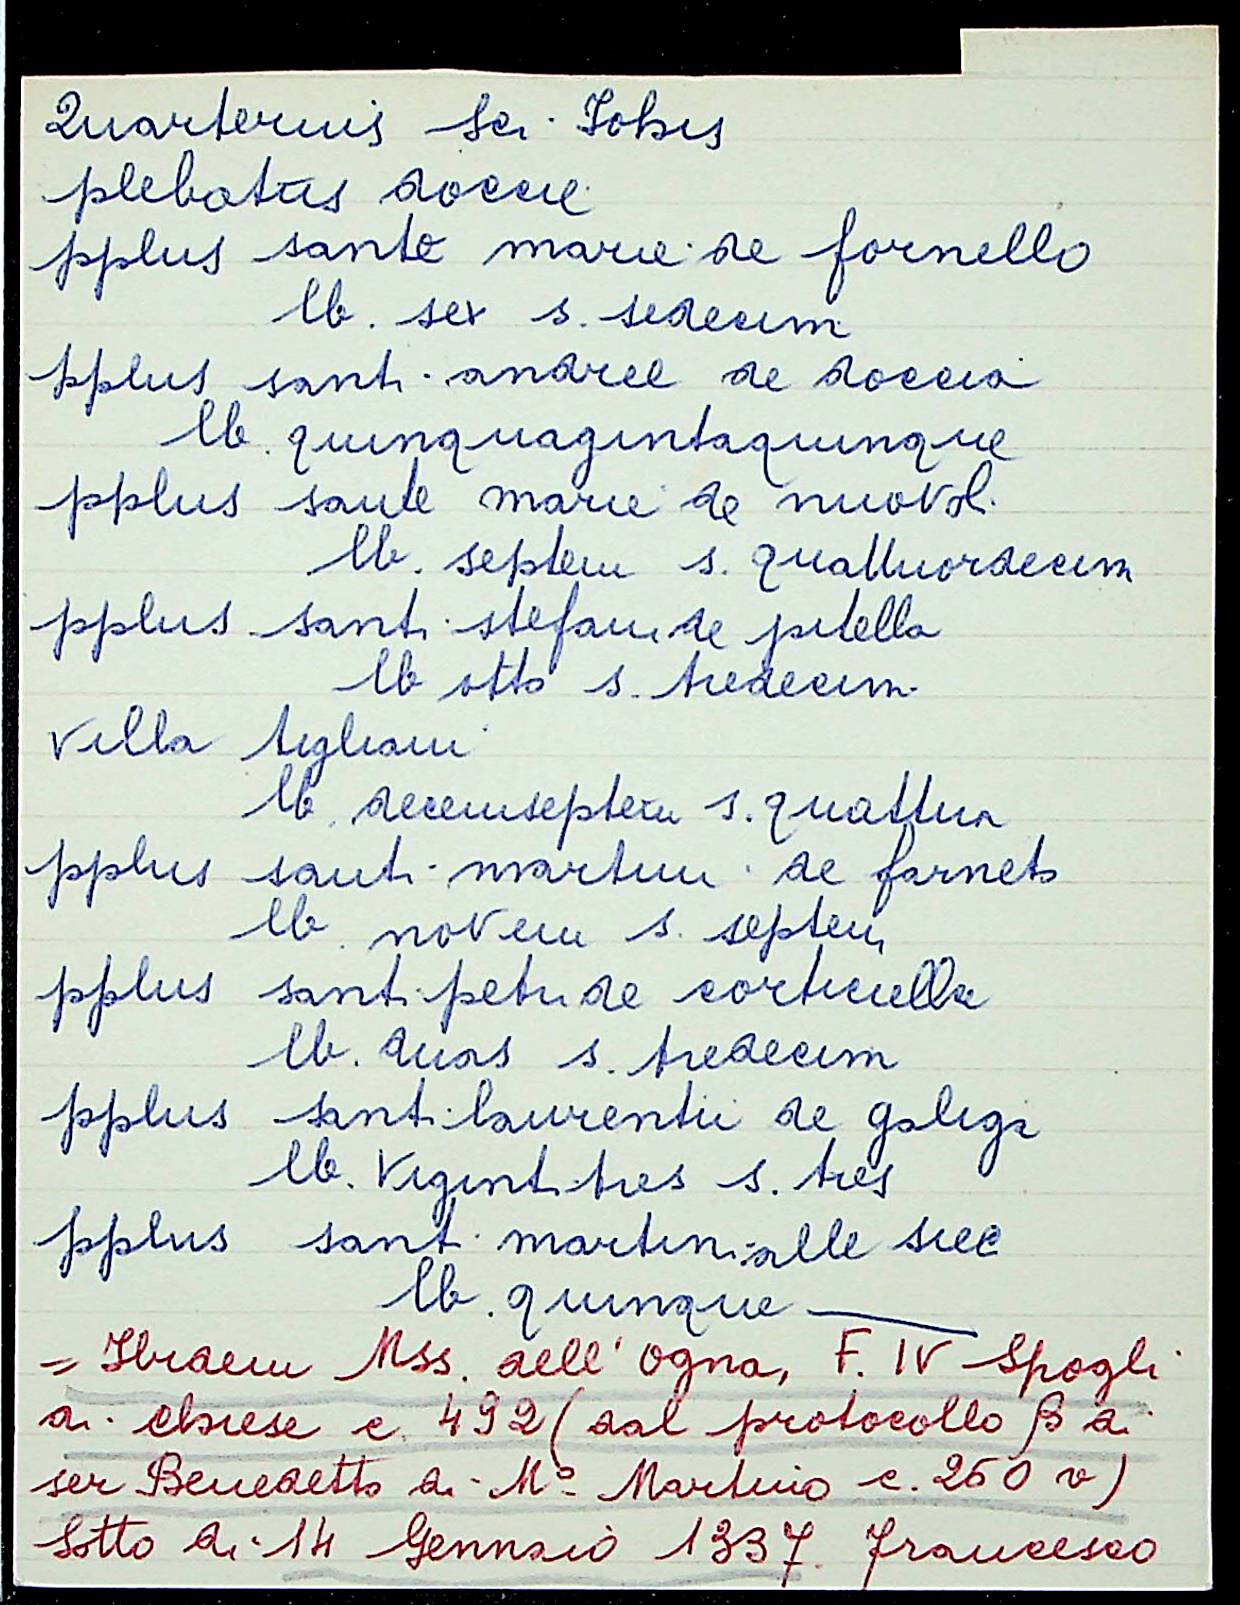 Quarternis Sci Johis
plebatus doccie
pplus sante marie de fornello
lb. sex s. sedecim
pplus santi andree de doccia
lb. quinquagintaquinque
pplus sante marie de nuovoli
lb. septem s. quattuordecim
pplus santi stefani de pitella
lb otto s. tredecim
villa tigliani
lb. decemseptem s. quattuor
pplus santi martini de farneto
lb. novem s. septem
pplus santi petri de corticella
lb. duas s. tredecim
pplus santi laurentii de galiga
lb. viginti tres s. tres
pplus santi martini alle
lb. quinque
= Ibidem Mss. dell'Ogna, F. IV Spogli
di chiese c. 492 (dal protocollo β di
ser Benedetto di M° Martino c. 260 v)
Sotto di 14 Gennaio 1337. Francesco